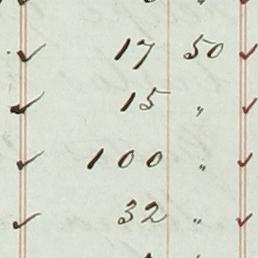 ✓ 17 50 ✓
✓ 15 " ✓
✓ 100 " ✓
✓ 32 " ✓